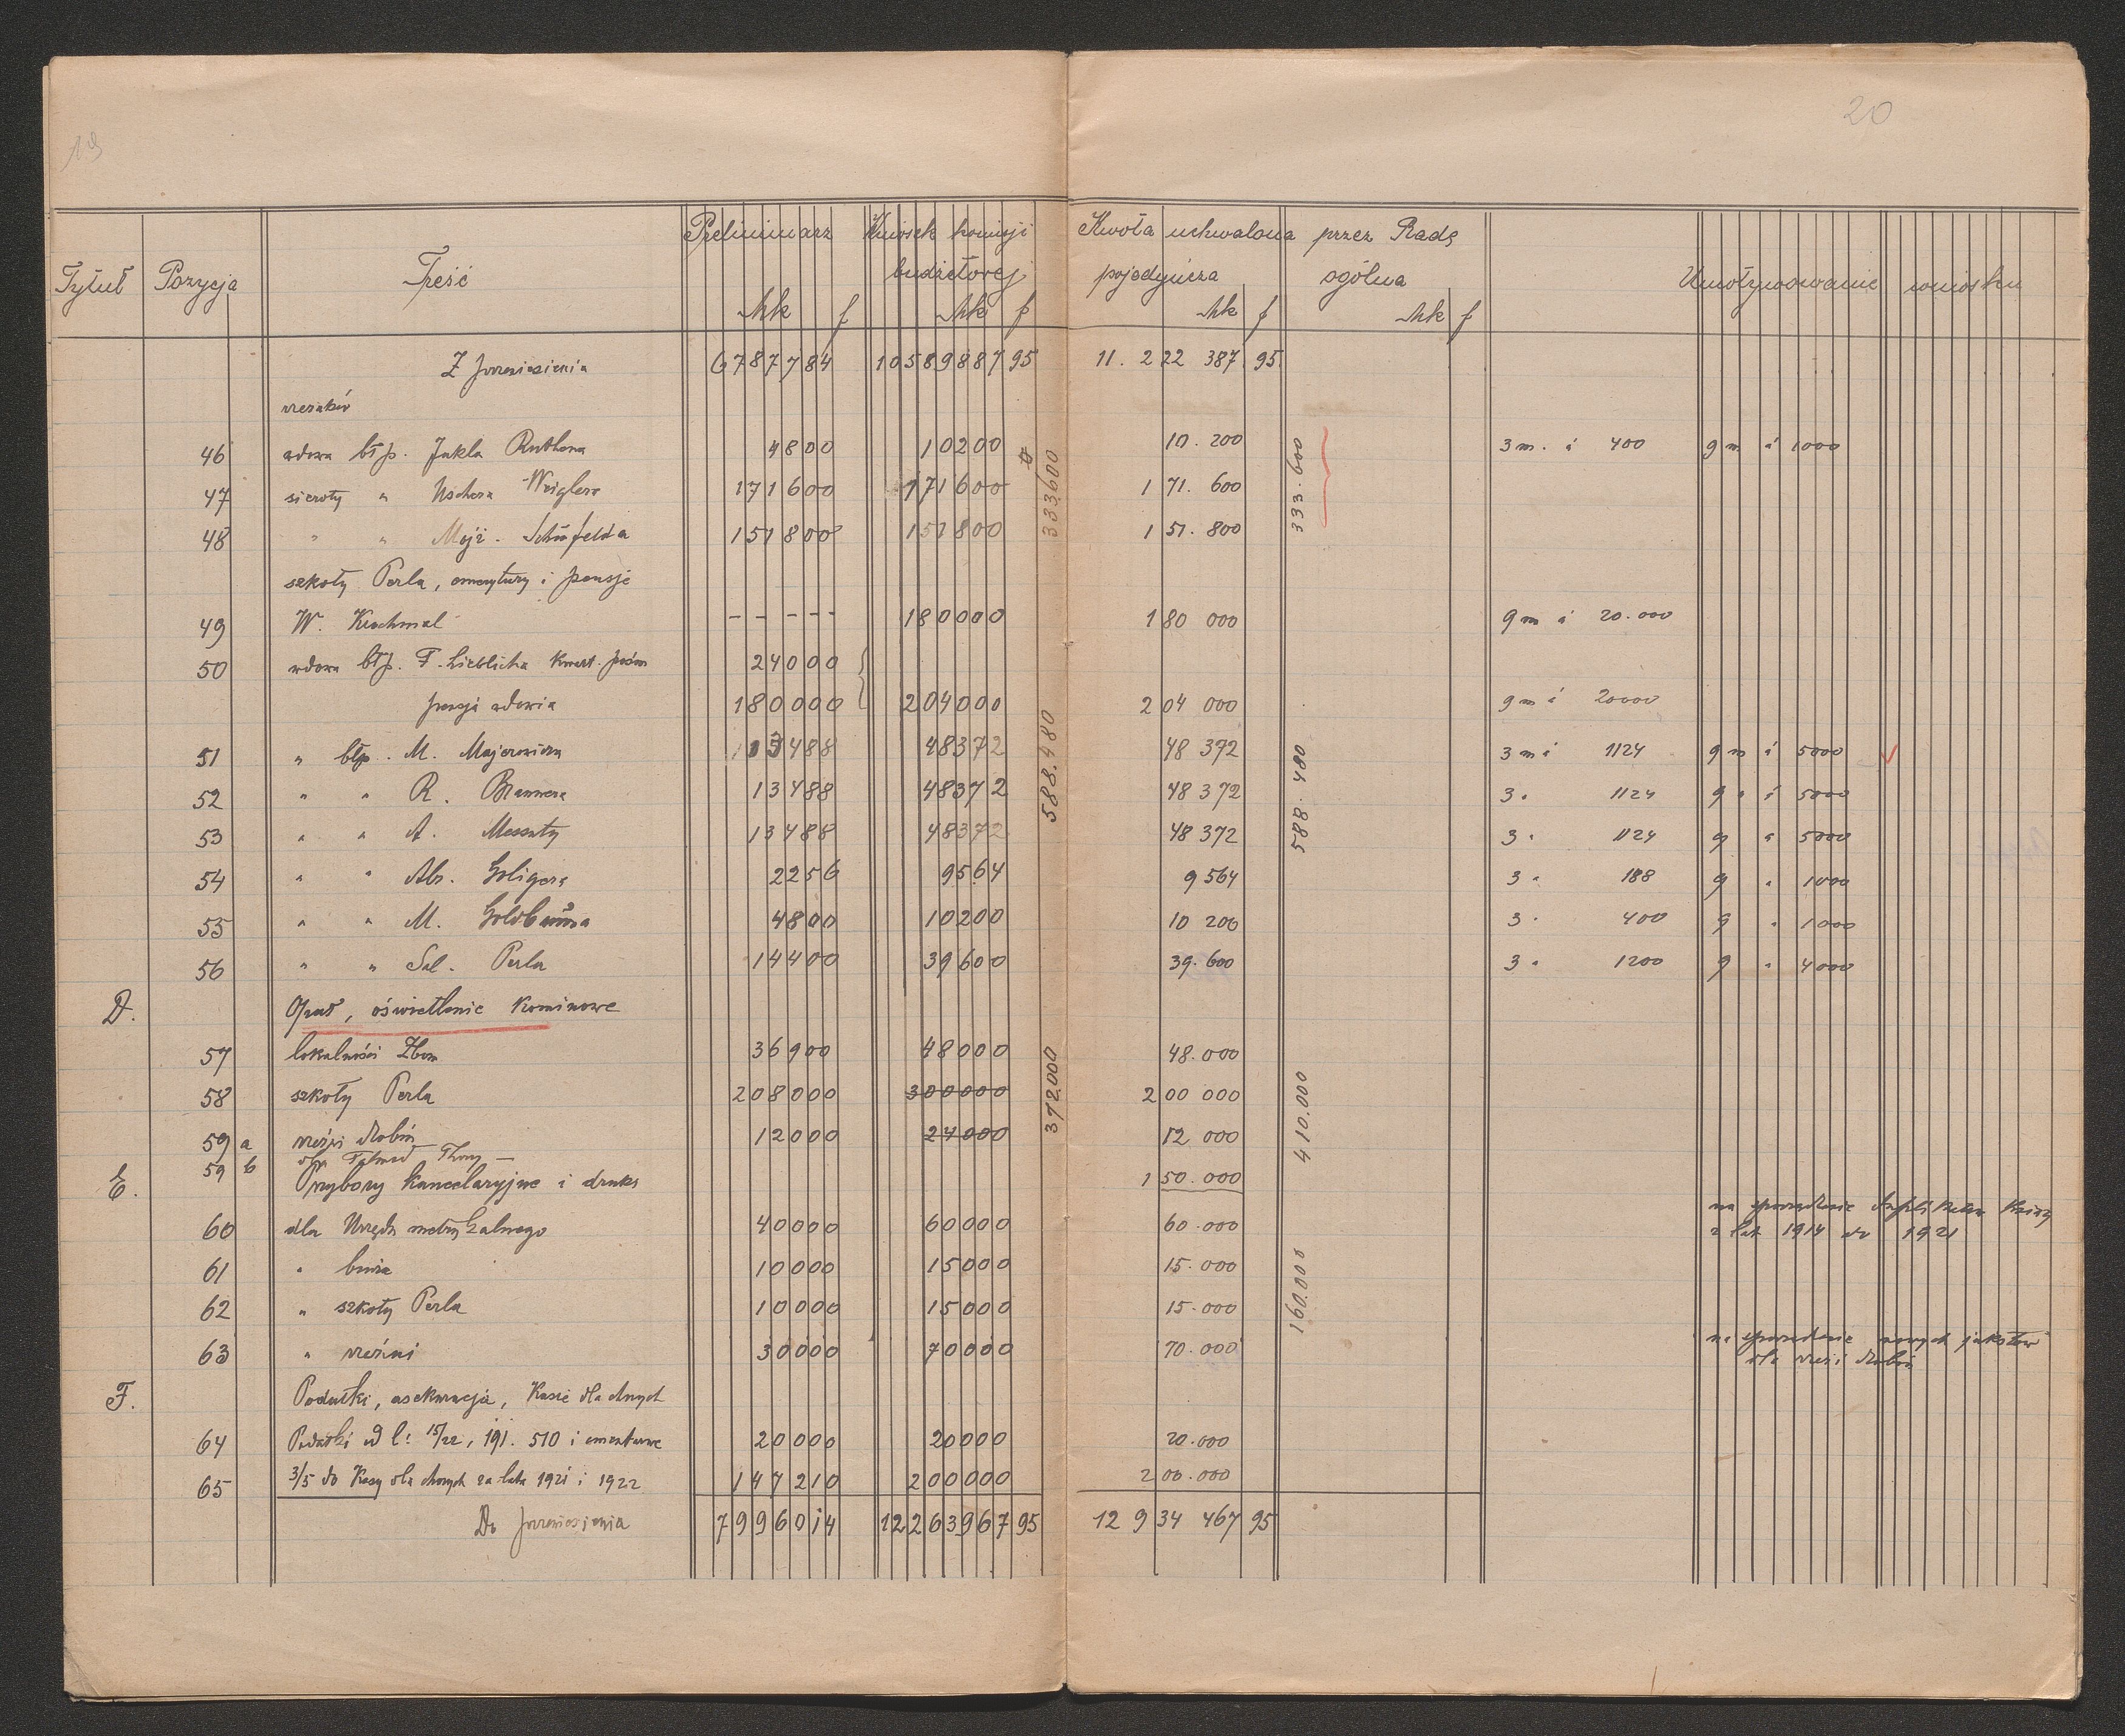 19
20
Tytuł Pozycja Treść Preliminarz Wniosek komisji budżetowej Kwota uchwalona przez Radę Umotywowanie wniosku
pojedyńcza ogólna
Mk f Mk f Mk f Mk f
Z przeniesienia 6787784 10589887 95 11.222 387 95
rzezaków
46 wdowa błp. Jukla Ruthena 4800 10200 10.200 3 m. á 400 9 m á 1000
47 sieroty " Uschera Weiglera 171600 171600 171.600
48 " " Mojż. Schönfelda 151800 151800 151.800
333600 333.600
szkoły Perla, emerytury i pensje
49 W. Krochmal - - - - - 180000 180 000 9 m á 20.000
50 wdowa błp. F. Lieblicha kwart. pośm 24000
pensja wdowia 180000 204000 204 000 9 m á 20000
51 " błp. M. Majerowicza 13488 48372 48 372 3 m á 1124 9 m á 5000
52 " " R. Brammera 13488 48372 48 372 3 " 1124 9 " á 5000
53 " " A. Messuty 13488 48372 48 372 3 " 1124 9 " 5000
54 " " Abr. Goligera 2256 9564 9 564 3 " 188 9 " 1000
55 " " M. Goldbauma 4800 10200 10 200 3 " 400 9 " 1000
56 " " Sal. Perla 14400 39600 39.600 3 " 1200 9 " 4000
588.480 588.480
D. Opał, oświetlenie kominowe
57 lokalności Zboru 36900 48000 48.000
58 szkoły Perla 208000 300000 200 000
59 a rzeźni drobiu 12000 24000 12 000
372.000 410.000
59 b dla Talmud Thory — 150.000
E. Przybory kancelaryjne i druki
60 dla Urzędu metrykalnego 40000 60000 60.000 na sporządzenie duplikatów ksiąg
z lat 1914 do 1921
61 " biura 10000 15000 15.000
62 " szkoły Perla 10000 15000 15.000
63 " rzeźni 30000 70000 70.000 na sporządzenie nowych
dla rzeźi drobiu
160.000
F. Podatki, asekuracja, Kasie dla chorych
64 Podatki od l: 15/22, 191. 510 i cmentarne 20000 20000 20.000
65 3/5 do Kasy dla chorych za lata 1921 i 1922 147210 200000 200.000
Do przeniesienia 7996014 12263967 95 12 934 467 95